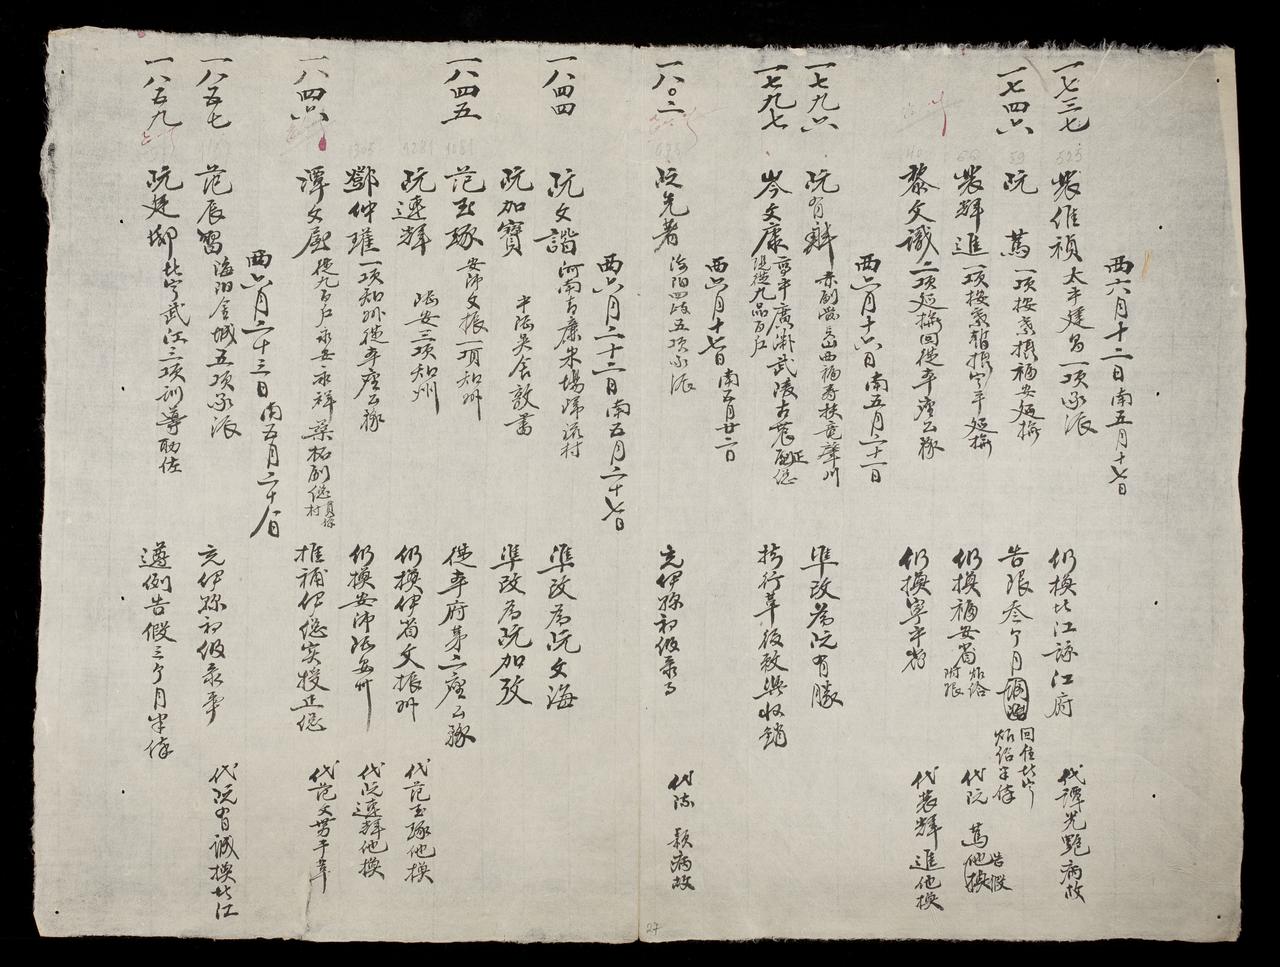 西六月十二日南五月十七日
一七三七 裴維禎 太平建昌一項承派 仍換北江諒江府 代譚光艷病故
一七四六 阮 篤 一項按察攝福安廵撫 告限叁个月 回住北宁 炤給半俸
裴輝進 一項按察暫攝宁平廵撫 仍換福安省 炤洛 附限 代阮 篤他換 告假
黎文識 二項廵撫回從本座公豫 仍換寧平省 代裴輝進他換
西六月十六日南五月二十一日
一七九六 阮有 山西福壽扶 準改為阮有勝
一七九七 岑文康 高平廣淵武陵古農 正 副總 從九品百户 擅行革後敕與收銷
西六月十七日南五月廿二日
一八〇二 阮先著 海陽四岐五項承派 充伊縣初級录事 代陳 款病故
西六月二十二日南五月二十七日
一八四四 阮文諧 河南青廉米場歸流村 準改為阮文海
阮加寶 吳舍敦書 準改為阮加孜
一八四五 范玉琢 安沛文振一項知州 從本府第二座公豫
阮連輝 陸安三項知州 仍換伊省文振州 代范玉琢他換
鄧仲瓘 一項知州從本座公豫 仍換安沛陸安州 代阮連輝他換
一八四六 譚文殿 從九百户永安永祥 柘副總 員 村 推補伊總实授正總 代范文 干革
西六月二十三日南五月二十八日
一八五七 范辰習 海陽金城五項承派 充伊縣初級录事 代阮有誠換北江
一八五九 阮廷 北宁武江三項訓導助佐 遵例告假三个月半俸
27